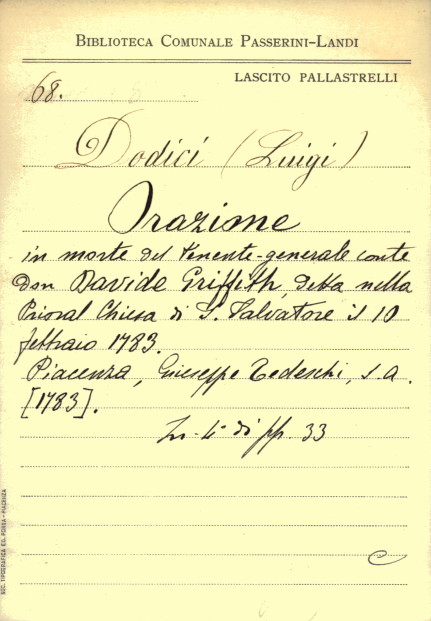 BIBLIOTECA COMUNALE PASSERINI-LANDI
LASCITO PALLASTRELLI
68.
Dodici (Luigi)
Orazione
in morte del Tenente-generale conte
Don Davide Griffith, detta nella
Prioral Chiesa di S. Salvatore il 10
febbraio 1783.
Piacenza, Giuseppe Tedeschi, s.a.
[1783].
In-4° di pp. 33
C
SOC. TIPOGRAFICA ED. PORTA - PIACENZA